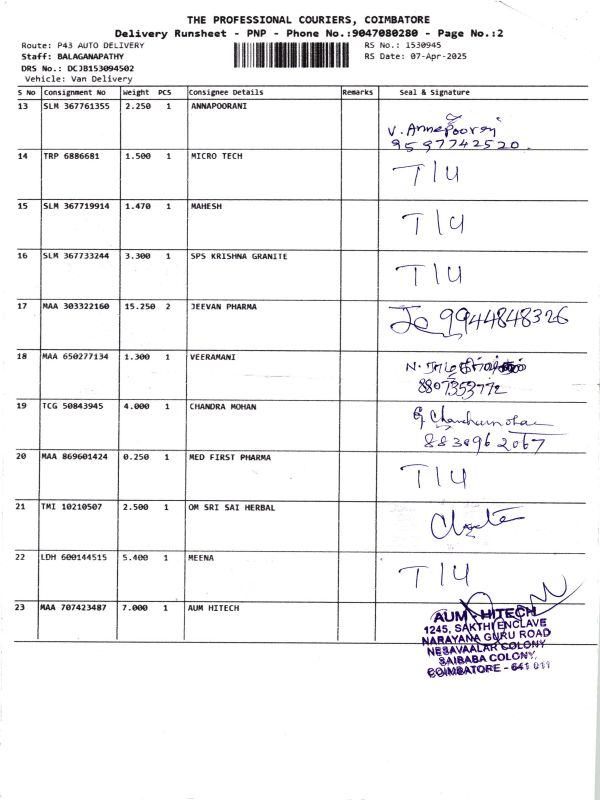 THE PROFESSIONAL COURIERS, COIMBATORE
Delivery Runsheet - PNP - Phone No.:9047080280 - Page No.:2
Route: P43 AUTO DELIVERY RS No.: 1530945
Staff: BALAGANAPATHY RS Date: 07-Apr-2025
DRS No.: DCJB153094502
Vehicle: Van Delivery
S No Consignment No Weight PCS Consignee Details Remarks Seal & Signature
13 SLM 367761355 2.250 1 ANNAPOORANI
V. Annapoorani
9597742520
14 TRP 6886681 1.500 1 MICRO TECH
T/U
15 SLM 367719914 1.470 1 MAHESH
T/U
16 SLM 367733244 3.300 1 SPS KRISHNA GRANITE
T/U
17 MAA 303322160 15.250 2 JEEVAN PHARMA
9944848326
18 MAA 650277134 1.300 1 VEERAMANI
8807353772
19 TCG 50843945 4.000 1 CHANDRA MOHAN
8838962067
20 MAA 869601424 0.250 1 MED FIRST PHARMA
T/U
21 TMI 10210507 2.500 1 OM SRI SAI HERBAL
22 LDH 600144515 5.400 1 MEENA
T/U
23 MAA 707423487 7.000 1 AUM HITECH
AUM HITECH
1245, SAKTHI ENCLAVE
NARAYANA GURU ROAD
NESAVAALAR COLONY
SAIBABA COLONY,
COIMBATORE - 641 011